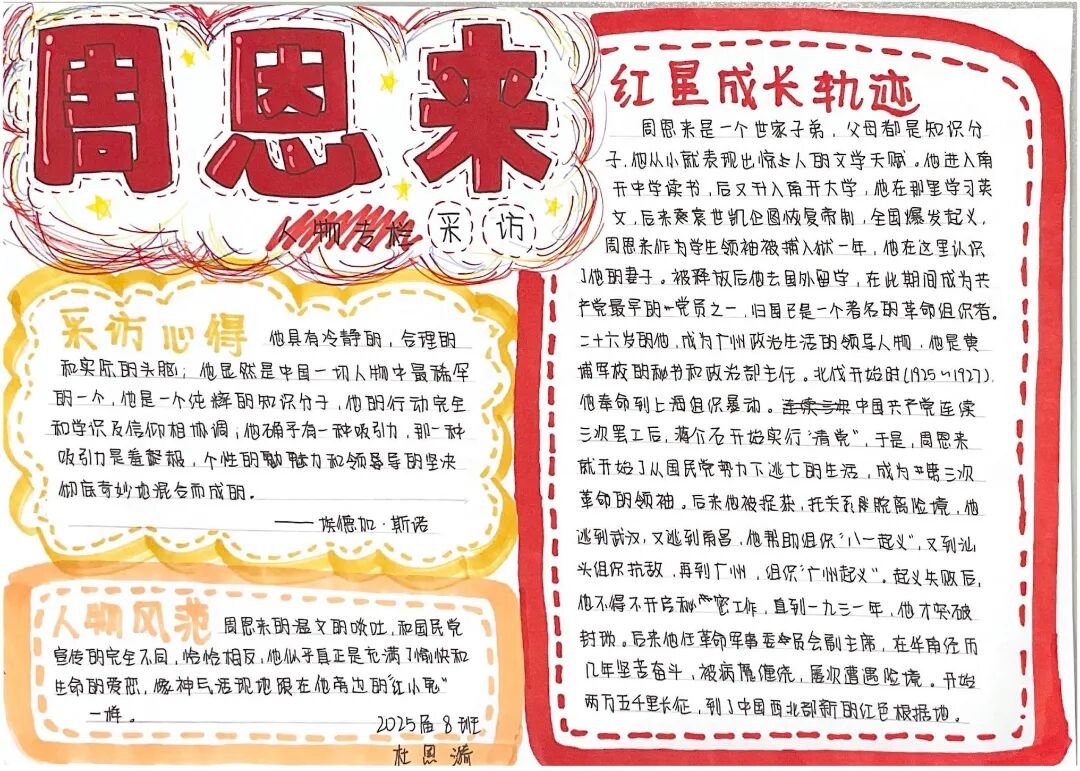 周恩来
人物专栏 采访
采访心得 他具有冷静的,合理的
和实际的头脑;他显然是中国一切人物中最稀罕
的一个,他是一个纯粹的知识分子,他的行动完全
和学识及信仰相协调,他确乎有一种吸引力,那一种
吸引力是羞整极,个性的魅力和领导的坚决
彻底奇妙地混合而成的。
——埃德加·斯诺
人物风范 周恩来的温文的谈吐,和国民党
宣传的完全不同,恰恰相反,他似乎真正是充满了愉快和
生命的爱恋,像神气活现地跟在他旁边的“红小鬼”
一样。
2025届8班
杜恩
红星成长轨迹
周恩来是一个世家子弟,父母都是知识分
子,他从小就表现出惊人的文学天赋。他进入南
开中学读书,后又升入南开大学,他在那里学习英
文,后来袁世凯企图恢复帝制,全国爆发起义,
周恩来作为学生领袖被捕入狱一年,他在这里认识
了他的妻子。被释放后他去国外留学,在此期间成为共
产党最早的党员之一,归国已是一个著名的革命组织者。
二十六岁的他,成为广州政治生活的领导人物,他是黄
埔军校的秘书和政治部主任。北伐开始时(1925~1927),
他奉命到上海组织暴动。连续三次中国共产党连续
三次罢工后,蒋介石开始实行“清党”,于是,周恩来
就开始了从国民党势力下逃亡的生活,成为第三次
革命的领袖。后来他被捉获,托关系脱离险境,他
逃到武汉,又逃到南昌,他帮助组织“八一起义”,又到汕
头组织抗敌,再到广州,组织“广州起义”。起义失败后,
他不得不开启秘密工作,直到一九三一年,他才突破
封锁。后来他任革命军事委员会副主席,在华南经历
几年坚苦奋斗,被病魔缠绕,屡次遭遇险境。开始
两万五千里长征,到了中国西北部新的红色根据地。